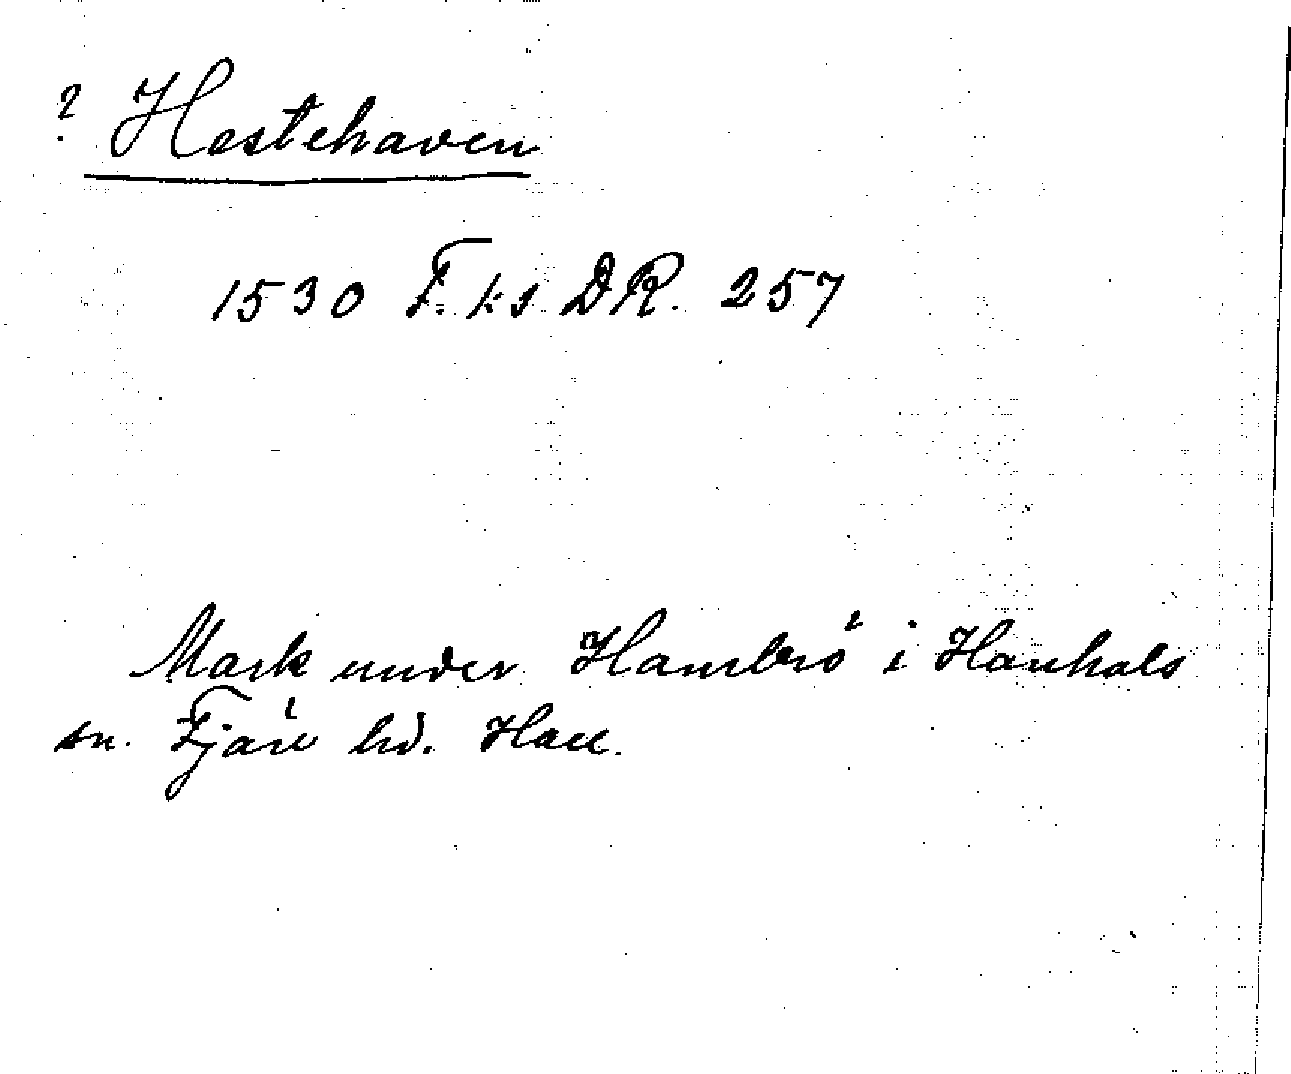 ? Hestehaven
1530 F. Is DR. 257
Mark under Hambrö i Hanhals
sn. Fjäre hd. Hall.